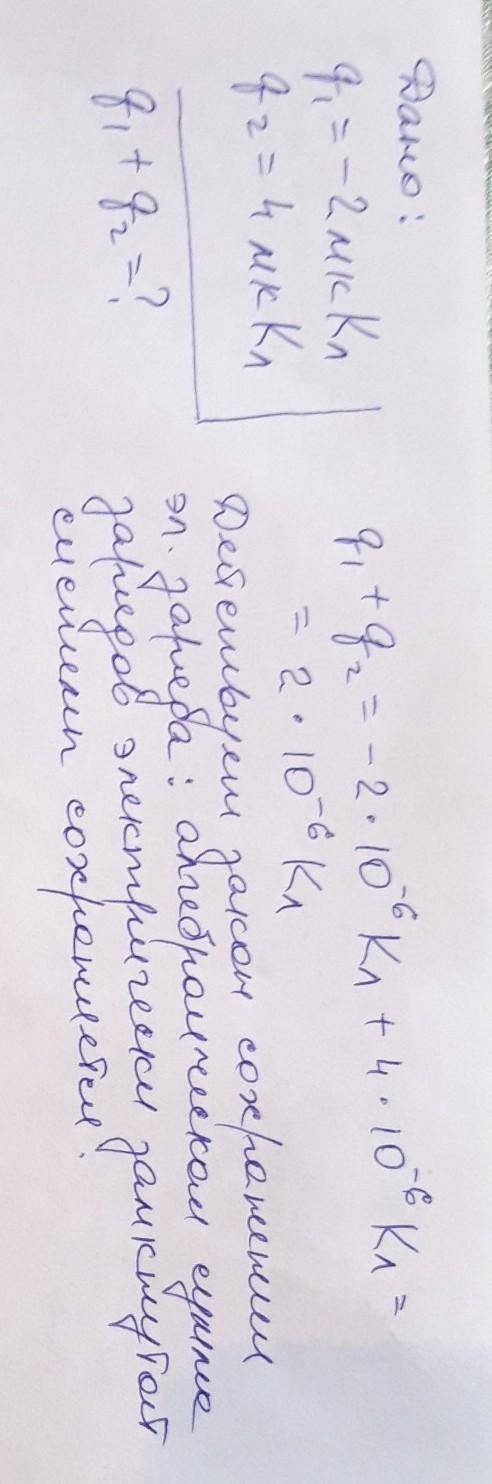 Дано:
q₁ = -2 мкКл
q₂ = 4 мкКл
q₁ + q₂ = ?
q₁ + q₂ = -2·10⁻⁶ Кл + 4·10⁻⁶ Кл =
= 2·10⁻⁶ Кл
Действует закон сохранения
эл. заряда: алгебраическая сумма
зарядов электрически замкнутой
системы сохраняется.